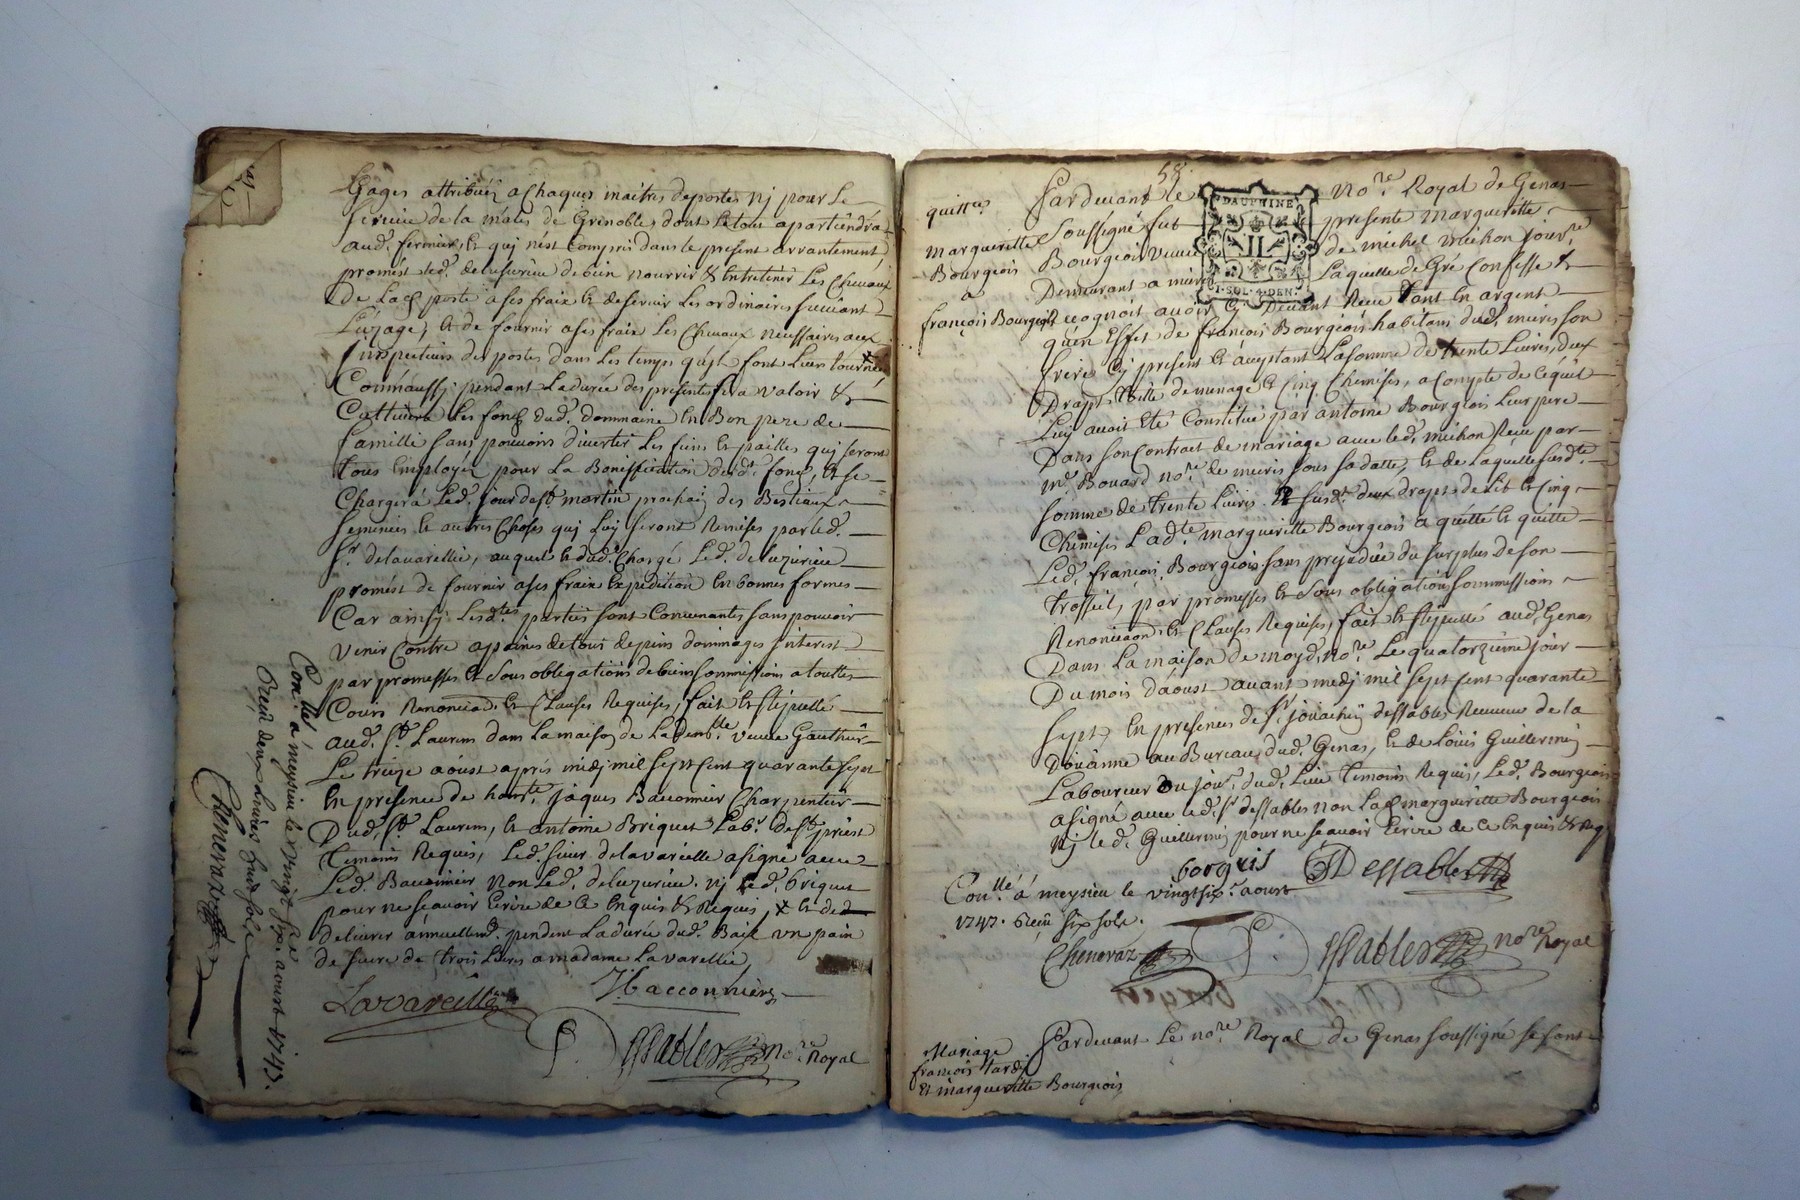 Gages attribuéz a Chaques maitres depostes nj pour Le
service de la males de Grenoble, dont Letout apartiendra
aud. fermier, et quj nest Compris dans le present arrantement,
promest led. deluzurieu de bien nourrir & Entretener Les Chevaux
De Lad. poste a ses fraix et deservir Les ordinaires suivant
Luzage, et de fournir a ses fraix Les Chevaux nessaires aux
Inspecteurs des postes dans les temps quils font Leurs tournées
Comme aussj pendant La durée des presentes fera valoir &
Cultivera Les fonds dud. dommaine En Bon pere de
famille sans pouvoirs divertir Les foins et pailles quj seront
tous Employéz pour La Bonniffication desd. fonds, et se
Chargera Led. jour de st. martin prochain des Bestiaux
semences et autres Choses quj Luy seront Remises par led.
sr. delavareillie, auquel led. Led. deluzurieu
promest de fournir a ses fraix Expedition En bonnes formes
Car ainsy Lesdtes. parties sont Convenantes sans pouvoir
venir Contre apaines de tous depens dommages jnterest
par promesses et sous obligations de biens sommissions a touttes
Cours Renonciaon. et Clauses Requises, fait et stipullé
aud. st. Laurens dans La maison de La veuve Gauthier
Le treize aoust aprés midj mil sept cent quarante sept
En presence de jaques Bacconnier Charpentier
Dud. st. Laurens, et antoine Briquet Labr. de st. priest
temoins Requis, Led. sieur delavareille a signé avec
Led. Baconnier, non Led. deluzurieu, nj Led. briquet
pour ne scavoir Ecrire de Ce Enquis & Requis, & de
delivrer annuellemt. pendant La durée dud. Bail un pain
de sucre de trois Livres a madame Lavareillie
Lavareille
J Bacconnier
P. Dessables nore. Royal
Conllé. à meysieu le vingt six aoust 1747.
Reçu deux Livres huit sols
Cheneraz
58
quittce.
margueritte
Bourgeois
a
françois Bourgeois
DAUPHINE
II
1·SOL·4·DEN.
Pardevant Le nore. Royal de Genas
soussigné fut presente marguerritte
Bourgeois veuve de michel michon jourr.
Demeurant a mions Laquelle de Gré Confesse &
Recognoit avoir cy Devant Receu tant En argent
quen Effet de françois Bourgeois habitans dud. mions son
frere Cy present et aceptant La somme de trente Livres, deux
Draps toille de menage et Cinq Chemises, a Compte de Cequil
Luy avoit Eté Constitué par antoine Bourgeois Leur pere
Dans son Contrat de mariage avec led. michon Receu par
me. Bouard nore. de mions sous sa datte, et de Laquelle susdte.
somme de trente Livres & susdt. deux draps de Lit et Cinq
Chemises Ladte. marguerritte Bourgeois a quitté et quitte
Led. françois Bourgeois sans prejudice du surplus de son
trossel, par promesses et sous obligations sommissions
Renonciaon. et Clauses Requises, fait et stipullé aud. Genas
Dans La maison de moyd. nore. Le quatorzieme jour
Du mois d'aoust avant midj mil sept cent quarante
sept En presences de sr. jouachin dessables Receveur de la
Doüanne au Bureau dud. Genas, et de Loüis Guillermin
Laboureur dud. Lieu temoins Requis, Led. Bourgeois
a signé avec led. sr. dessables non Lad. marguerritte Bourgeois
nj led. Guillermin pour ne scavoir Ecrire de Ce Enquis & Req
borgois
Dessables
Conllé. à meysieu le vingt six aoust
1747. Reçu six sols.
Cheneraz
P. Dessables nore. Royal
Mariage
françois tardy
et marguerritte Bourgeois
Pardevant Le nore. Royal de Genas soussigné se sont